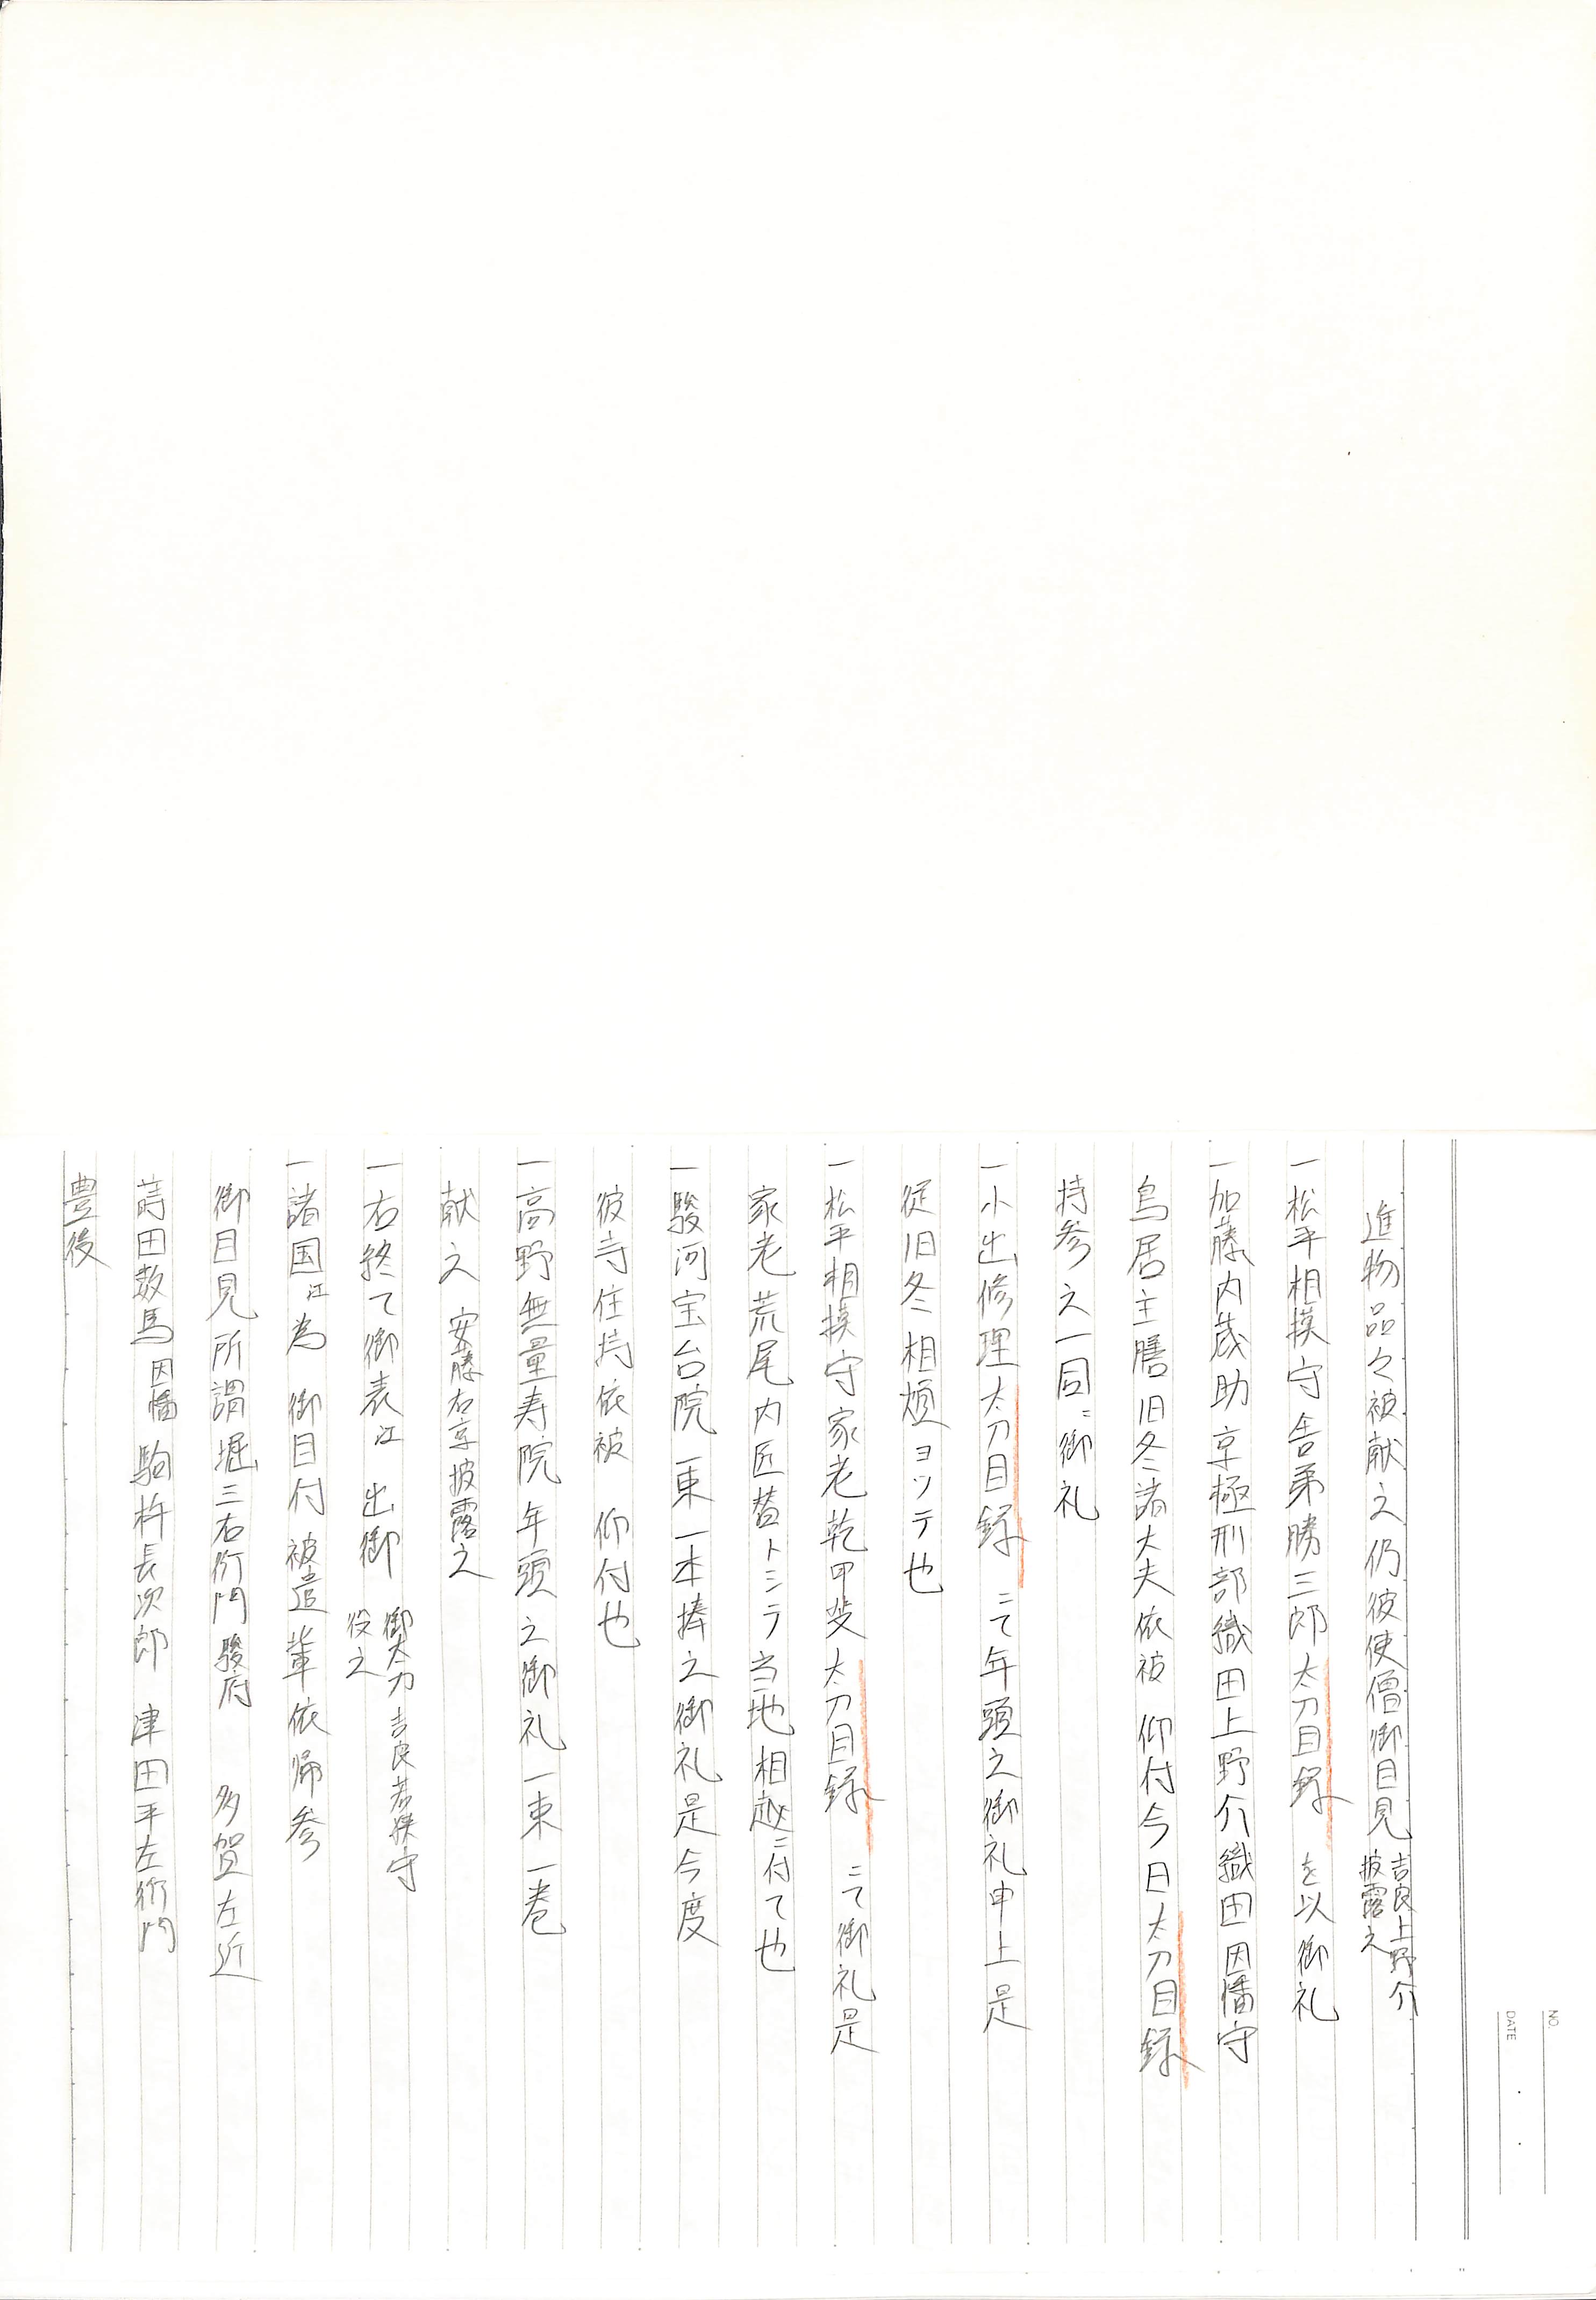 進物品々被献之仍彼使僧御目見 吉良上野介
披露之
一松平相摸守舎弟勝三郎太刀目録 を以御礼
一加藤内蔵助京極刑部織田上野介織田因幡守
鳥居主膳旧冬諸大夫依被 仰付今日太刀目録
持参之一同ニ御礼
一小出修理太刀目録 ニて年頭之御礼申上是
従旧冬相煩ヨツテ也
一松平相摸守家老乾甲斐太刀目録 ニて御礼是
家老荒尾内匠替トシテ当地相越ニ付て也
一駿河宝台院一束一本捧之御礼是今度
彼寺住持依被 仰付也
一高野無量寿院年頭之御礼一束一巻
献之 安藤右京披露之
一右終て御表江 出御 御太刀吉良若狭守
役之
一諸国江為 御目付被遣輩依帰参
御目見所謂堀三右衛門駿府 多賀左近
蒔田数馬因幡 駒杵長次郎 津田平左衛門
豊後
NO
DATE